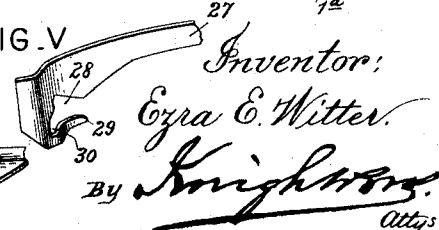 27
1a
FIG. V
28
29
30
Inventor:
Ezra E. Witter.
By Knight Bros.
Attys